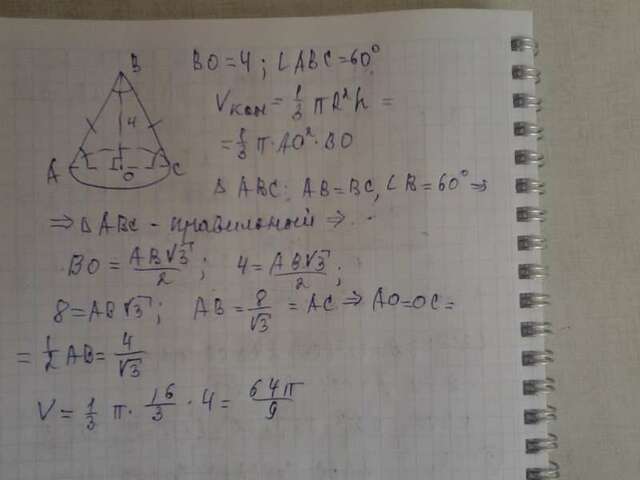 B
BO=4; ∠ABC=60°
Vкон=1/3 πR²h =
4
=1/3 π·AO²·BO
A O C
△ABC: AB=BC, ∠B=60°⇒
⇒△ABC - правильный ⇒
BO=AB√3/2; 4=AB√3/2;
8=AB√3; AB=8/√3=AC⇒AO=OC=
=1/2 AB=4/√3
V=1/3 π·16/3·4=64π/9